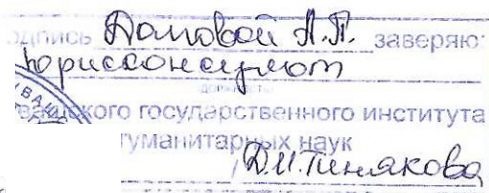 одпись Домовой А.П. заверяю:
юрисконсульт
должность
вашского государственного института
гуманитарных наук
Д.И. Тинякова